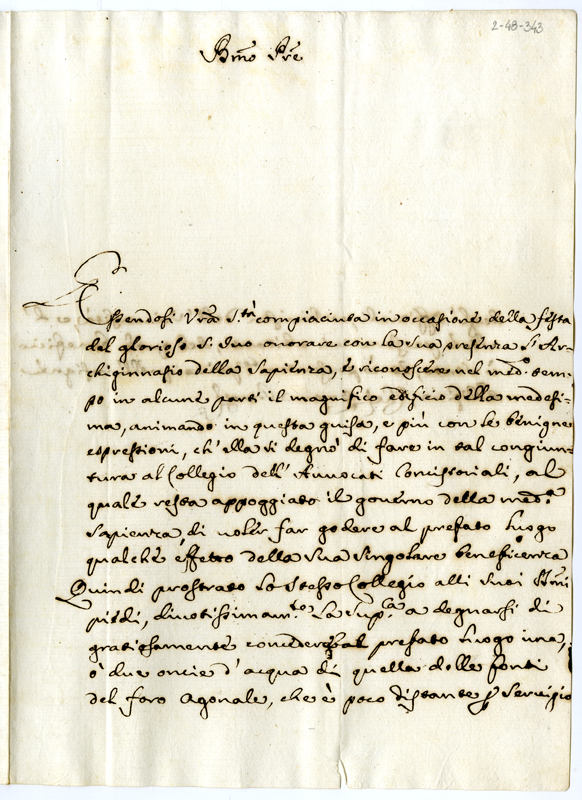 2-48-343
Bmo Pre
Essendosi Vra S.tà compiaciuta in occasione della festa
del glorioso S. Ivo onorare con la sua presenza l'Ar-
chiginnasio della Sapienza, e riconoscere nel med.o tem-
po in alcune parti il magnifico edificio della medesi-
ma, animando in questa guisa, e più con le benigne
espressioni, ch'ella si degnò di fare in tal congiun-
tura al Collegio dell'Avvocati Concistoriali, al
quale resta appoggiato il governo della med.a
Sapienza, di voler far godere al prefato luogo
qualche effetto della sua singolare beneficenza
Quindi prostrato lo stesso Collegio alli suoi SSmi
piedi, divotissimam.te La supp.ca a degnarsi di
gratiosamente concedere al prefato luogo una,
ò due oncie d'acqua di quella delle fonti
del foro Agonale, che è poco distante p servigio